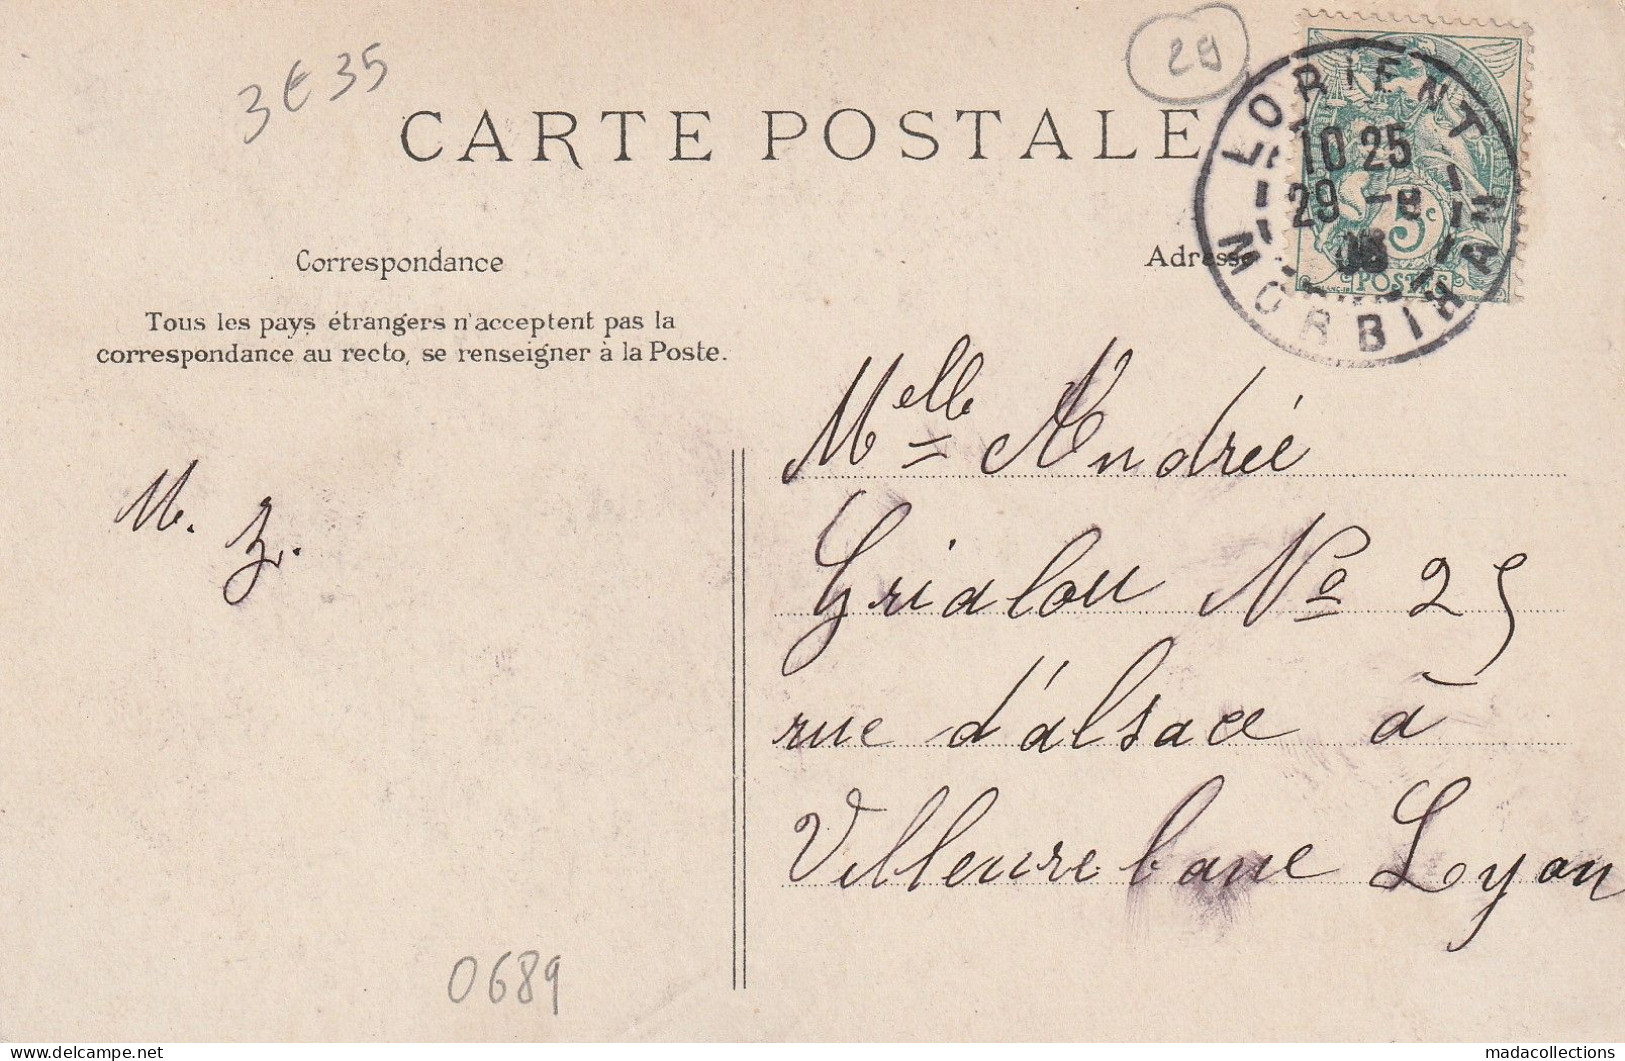 3 € 35
29
CARTE POSTALE
LORIENT
10 25
29 -8
08
MORBIHAN
5c
POSTES
Correspondance
Adresse
Tous les pays étrangers n'acceptent pas la
correspondance au recto, se renseigner à la Poste.
Melle Andrée
M. Z.
Grialou No 25
rue d'alsace à
Villeurebane Lyon
0689
madacollections